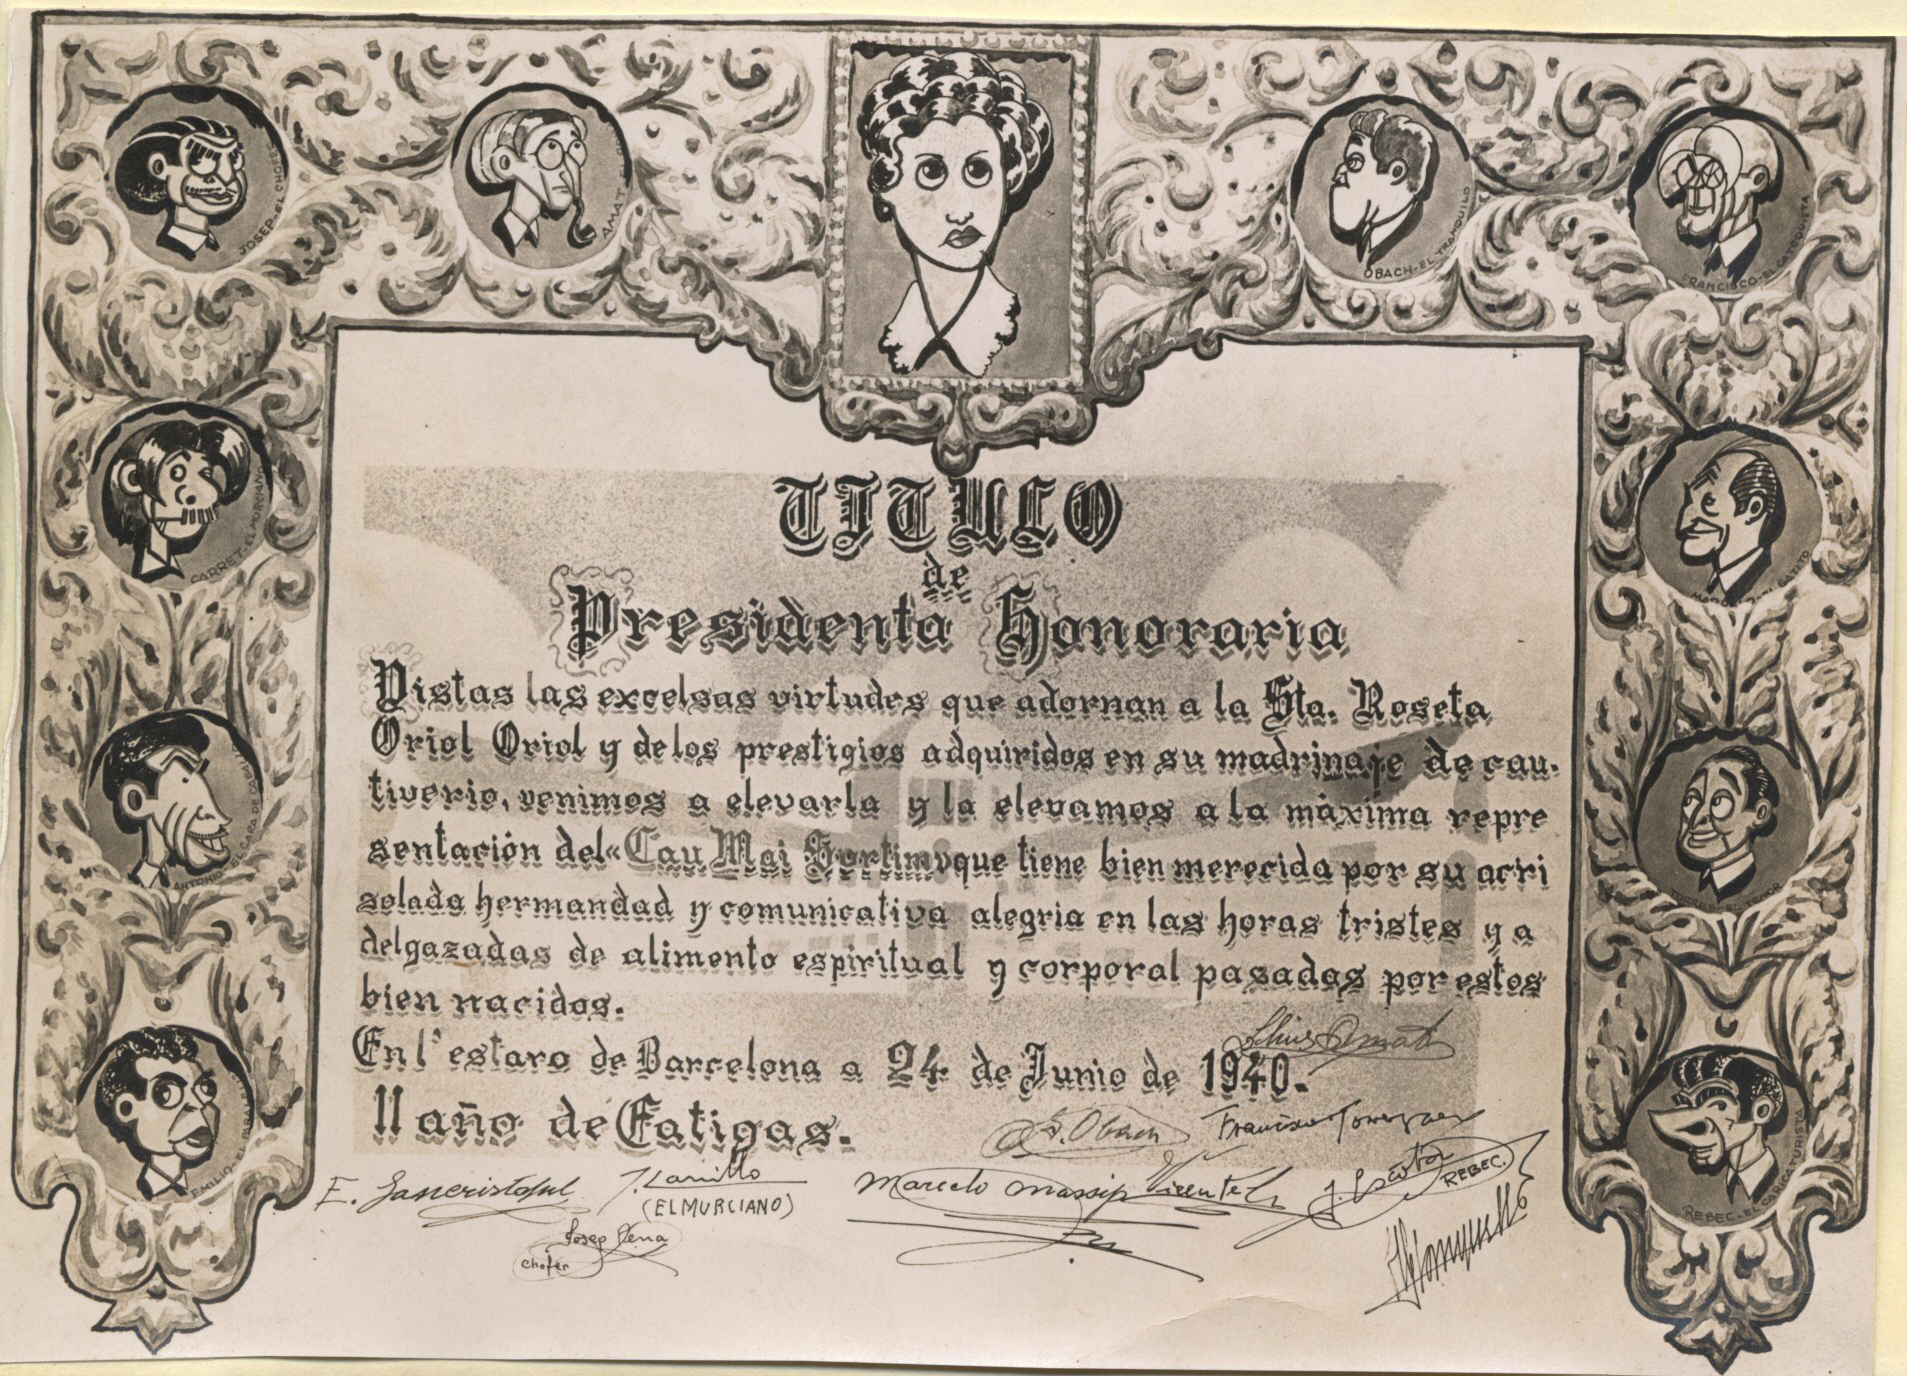 JOSEP-EL CHOFER
AMAT
OBACH-EL TRANQUILO
FRANCISCO-EL CATEQUISTA
CARRET-EL MURCIANO
ANTONIO-EL CARA DE
EMILIO-EL
REBEC-EL CARICATURISTA
TITULO
de
Presidenta Honoraria
Vistas las excelsas virtudes que adornan a la Sta. Roseta
Oriol Oriol y de los prestigios adquiridos en su madrinaje de cau-
tiverio, venimos a elevarla y la elevamos a la máxima repre
sentación del «Cau Mai Hortim» que tiene bien merecida por su acri
solada hermandad y comunicativa alegria en las horas tristes y a
delgazadas de alimento espiritual y corporal pasadas por estos
bien nacidos.
En l'estaro de Barcelona a 24 de Junio de 1940.
II año de Fatigas.
Lluis Amat
Obach
Francisco
E. Sancristoful
(EL MURCIANO)
Marcelo Massip
Vicente
J.
REBEC.
Josep
chofer